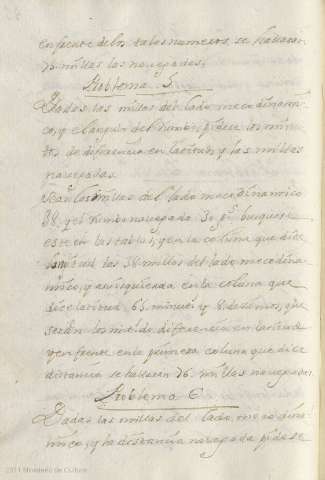 enfrente de los tales numeros, se hallaran
76 millas las navegadas.
Problema 5.
Dadas las millas del lado mecodinami-
co, y el angulo del rumbo, pidese los minu-
tos de diferencia en latitud, y las millas
navegadas.
Sean las millas del lado mecodinamico
38, y el rumbo navegado 30 gs. busquese
este en las tablas, y en la coluna que dice
las 38 millas del lado mecodina-
mico, y a su izquierda en la coluna que
dice latitud 65 minutos y 8 dezimos, que
seran los mesmos de diferencia en latitud
y en frente en la primera coluna que dice
distancia se hallaran 76 millas navegadas
Problema 6.
Dadas las millas del lado mecodina-
mico, y la distancia navegada pidese
2011 Ministerio de Cultura